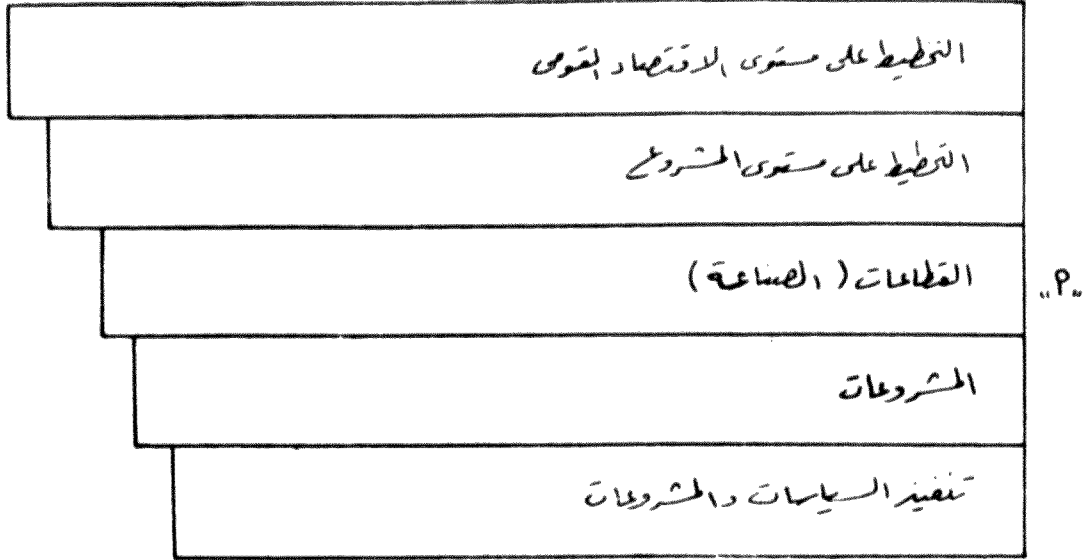 التخطيط على مستوى الاقتصاد القومى
التخطيط على مستوى المشروع
القطاعات (الصناعة)
"P"
المشروعات
تنفيذ السياسات والمشروعات